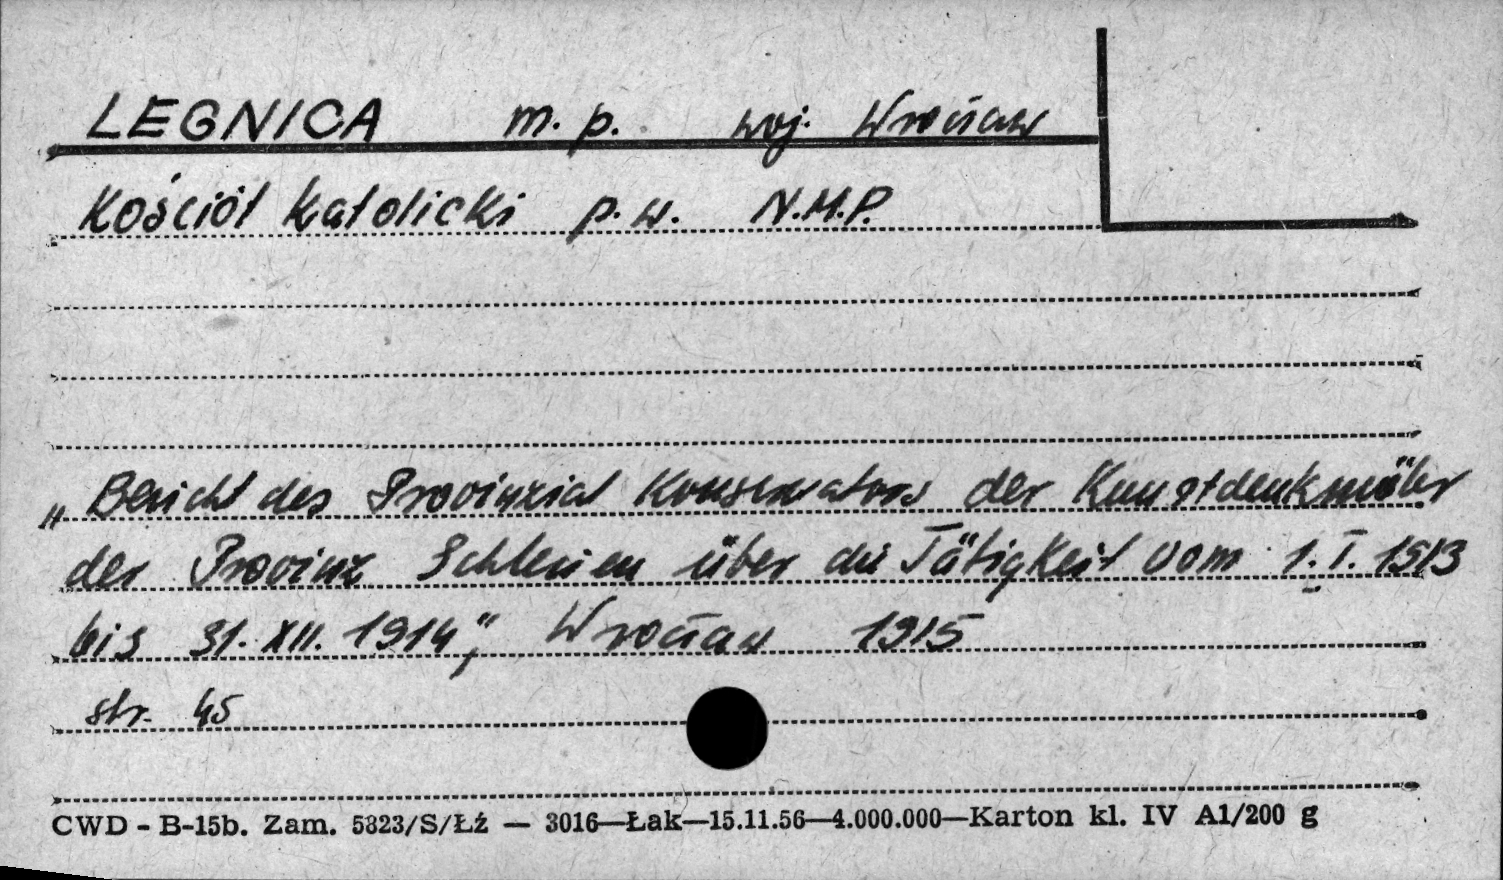 LEGNICA m. p. woj. Wrocław
Kościół katolicki p.w. N.M.P.
„Bericht des Provinzial Konservators der Kunstdenkmäler
der Provinz Schlesien über die Tätigkeit vom 1.I. 1913
bis 31. XII. 1914", Wrocław 1915
str. 45
CWD - B-15b. Zam. 5823/S/Łź — 3016—Łak—15.11.56—4.000.000—Karton kl. IV A1/200 g